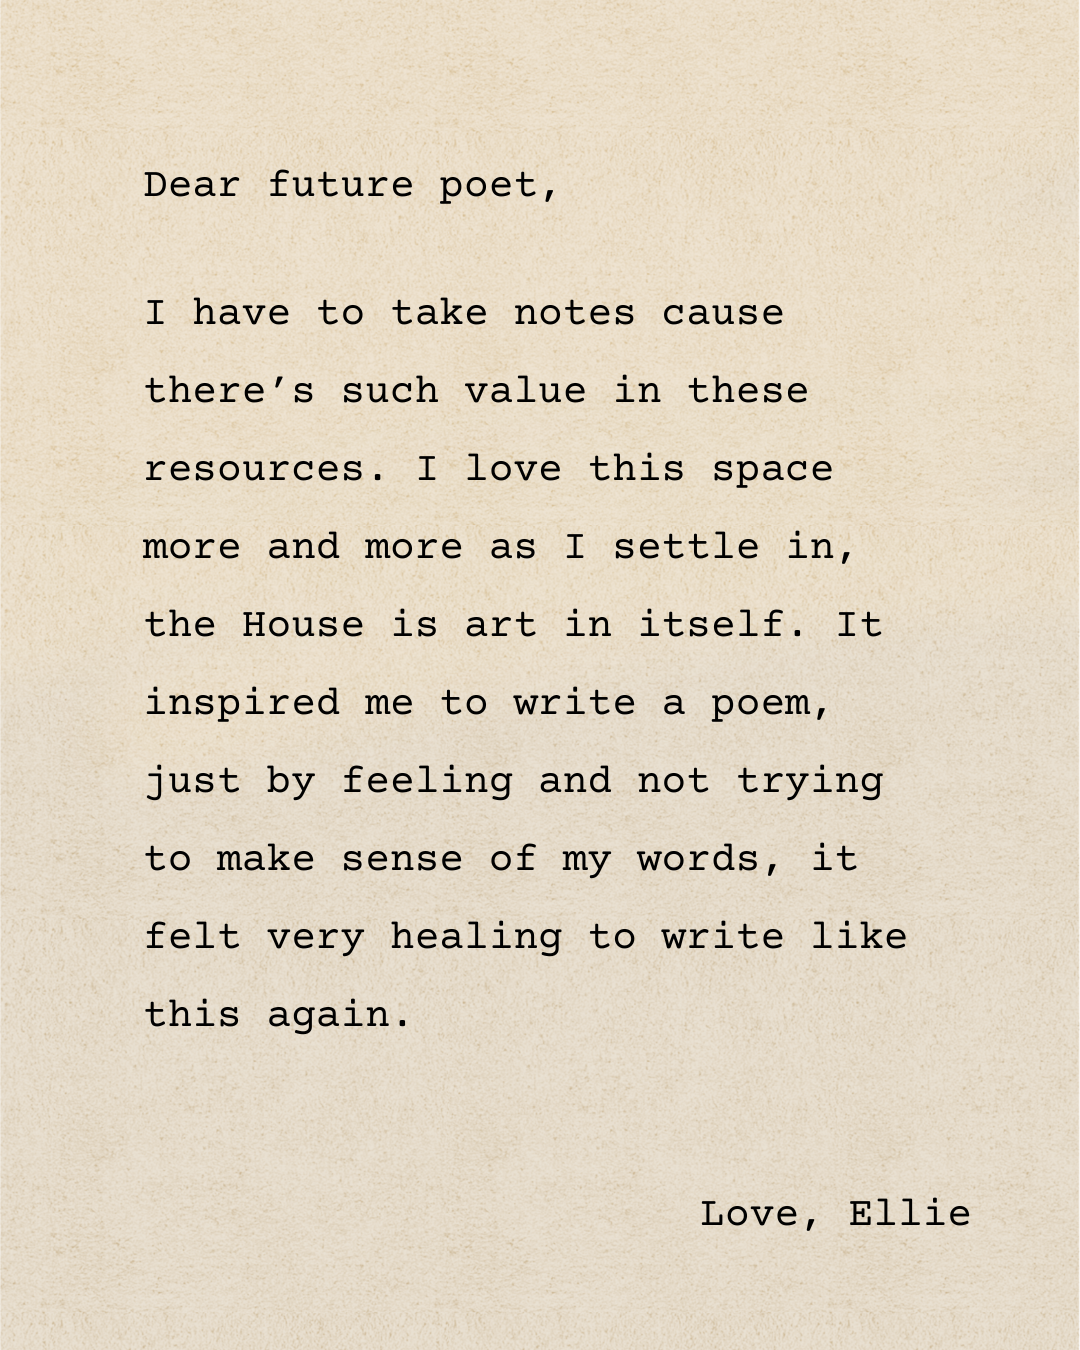 Dear future poet,
I have to take notes cause
there’s such value in these
resources. I love this space
more and more as I settle in,
the House is art in itself. It
inspired me to write a poem,
just by feeling and not trying
to make sense of my words, it
felt very healing to write like
this again.
Love, Ellie